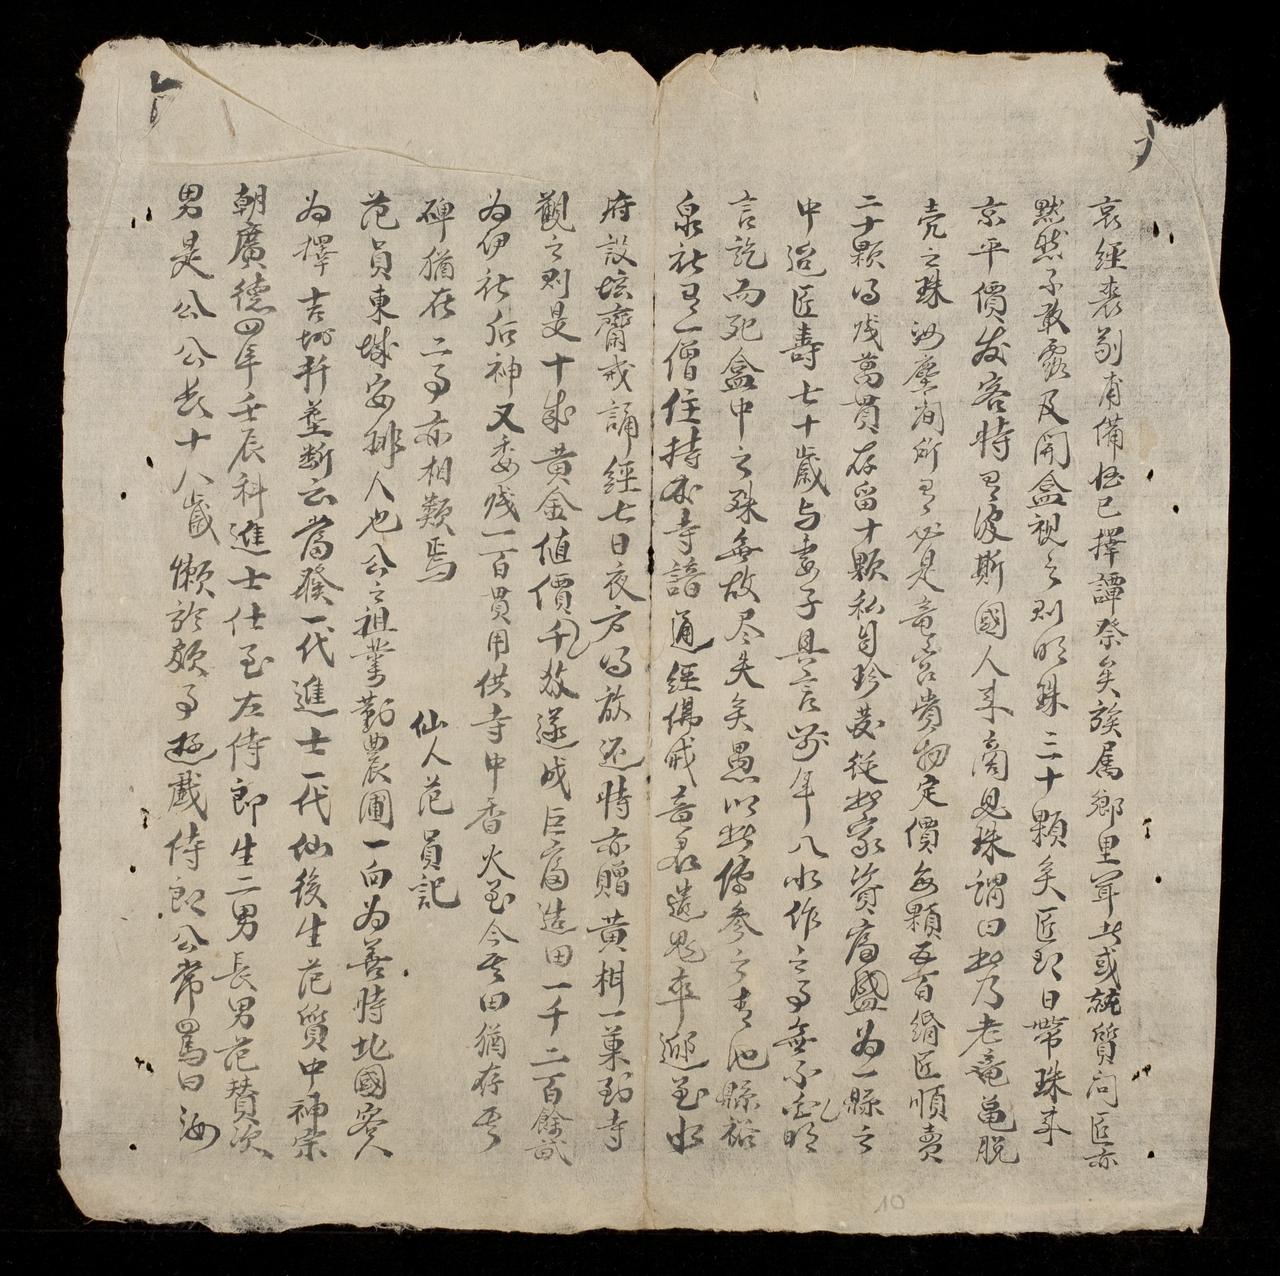 哀經喪制甫備徃已擇譚祭矣族属鄉里穿此或執質问匠亦
黙然不敢露及開盒視之則明珠三十顆矣匠即日帶珠来
京平價发客時有波斯國人来商見珠謂曰此乃老竜亀脱
壳之珠汝塵间所有必是竜宮賞物定價每顆五百緡匠順賣
二十顆得戔萬貫存留十顆私自珍蔵從此家資富盛为一縣之
中迨匠壽七十歲与妻子具言前年入水作之事無不明
言訖而死盒中之珠無故尽失矣愚以此傳參之青池縣裕
泉社有一僧住持本寺諳通經偈戒音君遣鬼卒迎至水
府設坛齋戒誦經七日夜方得放还時亦贈黄柑一菓到寺
觀之則是十成黄金值價千放遂成巨富造田一千二百餘畝
为伊社后神又委戔一百貫用供寺中香火至今其田猶存其
碑猶在二事亦相類焉
仙人范員記
范員東城安排人也公之祖業勤農圃一向为善時北國客人
为擇吉地扦墓断云當發一代進士一代仙後生范質中神宗
朝廣德四年壬辰科進士仕至左侍郎生二男長男范賛次
男是公公长十八歲懒於頗事遊戲侍郎公常罵曰汝